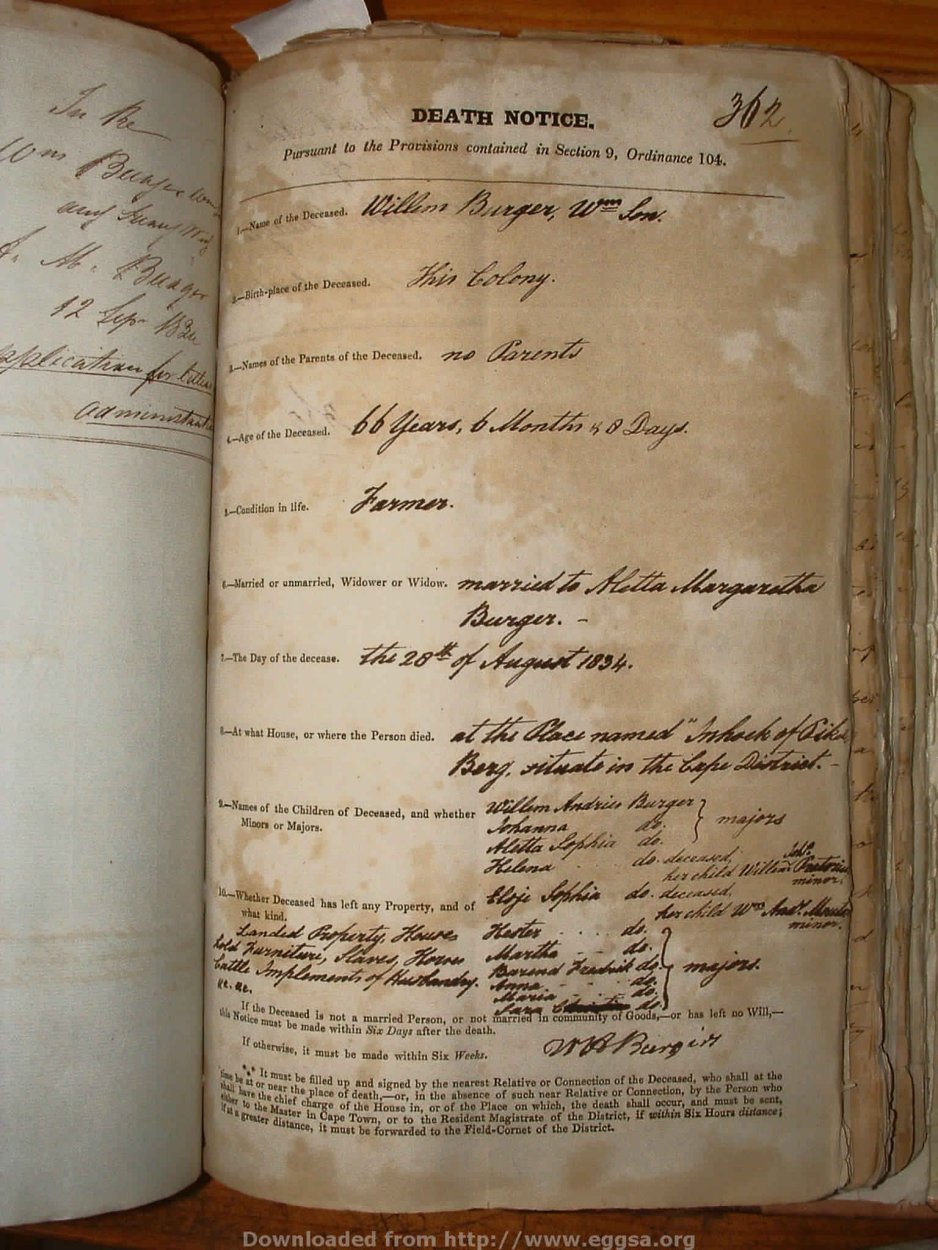 In the
Wm Burger Wm
and
A. M. Burger
12 Sep 1834
application for
administration
362
DEATH NOTICE.
Pursuant to the Provisions contained in Section 9, Ordinance 104.
1.—Name of the Deceased. Willem Burger, Wm Son.
2.—Birth-place of the Deceased. This Colony.
3.—Names of the Parents of the Deceased. no Parents
4.—Age of the Deceased. 66 Years, 6 Months & 8 Days.
5.—Condition in life. Farmer.
6.—Married or unmarried, Widower or Widow. married to Aletta Margaretha
Burger. -
7.—The Day of the decease. the 28th of August 1834.
8.—At what House, or where the Person died. at the Place named "Inhoek of Pike
Berg, situate in the Cape District. -
9.—Names of the Children of Deceased, and whether
Minors or Majors.
Willem Andries Burger } majors
Johanna do.
Aletta Sophia do.
Helena do. deceased,
her child Willem Johs. Pretorius
minor.
Elsje Sophia do. deceased,
her child Wm Andr.
minor.
Hester do.
Martha do.
Barend Fredrik do. } majors.
Anna do.
Maria do.
Sara do.
10.—Whether Deceased has left any Property, and of
what kind.
Landed Property, Houses
hold Furniture, Slaves, Horses
Cattle Implements of Husbandry.
&c. &c.
If the Deceased is not a married Person, or not married in community of Goods,—or has left no Will,—
this Notice must be made within Six Days after the death.
If otherwise, it must be made within Six Weeks.
*** It must be filled up and signed by the nearest Relative or Connection of the Deceased, who shall at the
time be at or near the place of death,—or, in the absence of such near Relative or Connection, by the Person who
shall have the chief charge of the House in, or of the Place on which, the death shall occur, and must be sent,
either to the Master in Cape Town, or to the Resident Magistrate of the District, if within Six Hours distance;
if at a greater distance, it must be forwarded to the Field-Cornet of the District.
Downloaded from http://www.eggsa.org